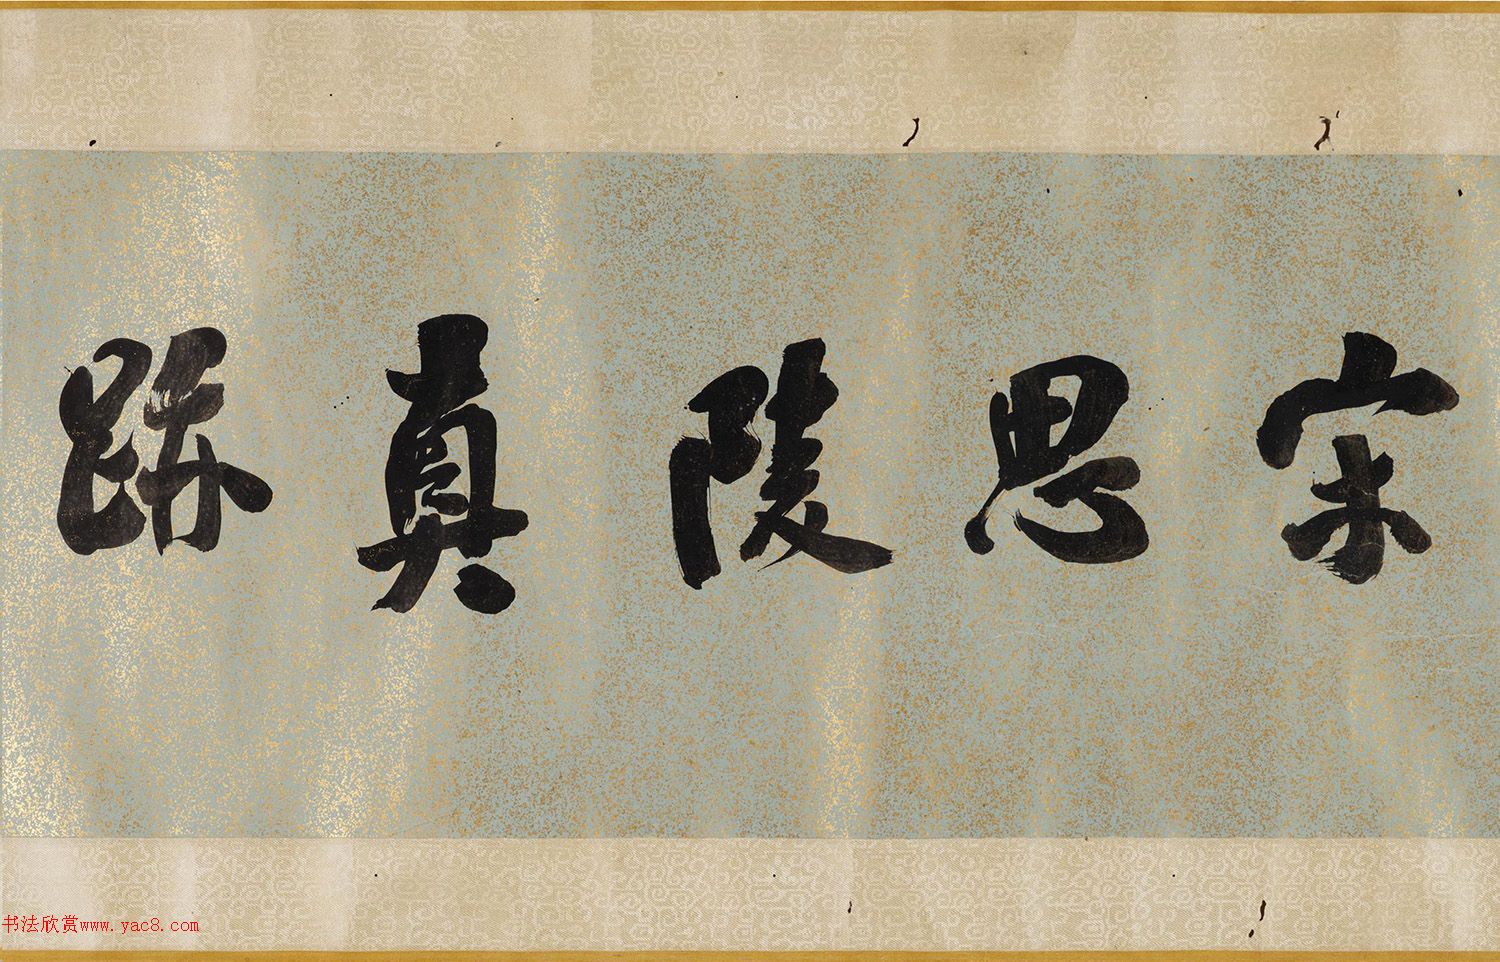 宋思陵真跡
书法欣赏www.yac8.com